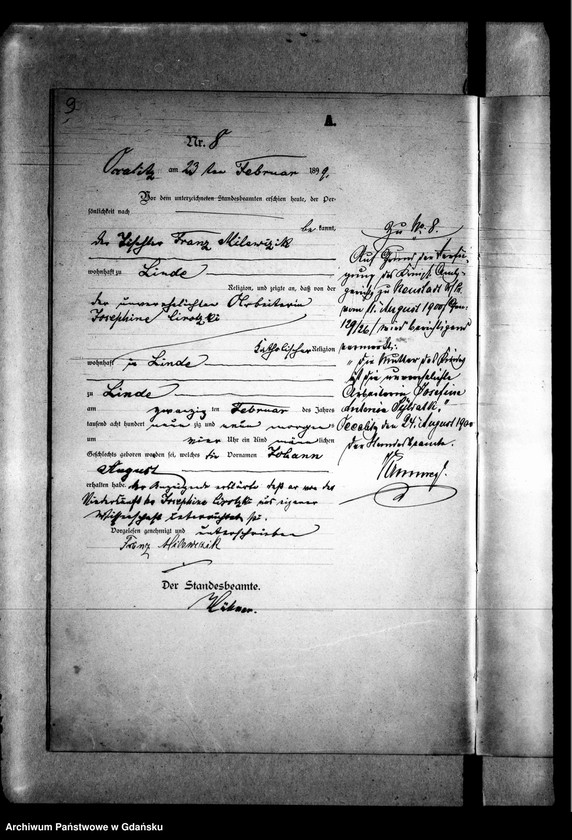 9
A.
Nr. 8
am 23 ten Februar 1899.
Vor dem unterzeichneten Standesbeamten erschien heute, der Per-
sönlichkeit nach
be kannt,
der Franz Milewczik
wohnhaft zu Linde
Religion, und zeigte an, daß von der
der unverehelichten Arbeiterin
Josephine
katholischer Religion
wohnhaft zu Linde
zu Linde
am zwanzig ten Februar des Jahres
tausend acht hundert neun zig und neun morgens
um vier Uhr ein Kind männlichen
Geschlechts geboren worden sei, welches die Vornamen Johann
August
erhalten habe. Der Anzeigende erklärte daß er von der
Niederkunft der Josephine aus eigener
Wissenschaft unterrichtet sei.
Vorgelesen genehmigt und unterschrieben
Franz Milewczik
Der Standesbeamte.
Zu No. 8.
Auf Grund der Verfü-
gung des Königl. Amts-
gerichts zu Neustadt
vom 11. August 1900
wird berichtigend
vermerkt:
"die Mutter des Kindes
ist die unverehelichte
Arbeiterin Josefine
Antonie
den 24. August 1900
Der Standesbeamte.
Archiwum Państwowe w Gdańsku